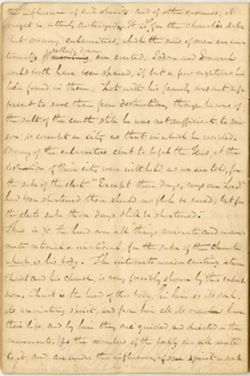 the influence of evil spirits and of other enemies, it
It is for the church's sake
that many calamities, which the sins of men are con-
tinually calling down, are averted. Sodom and Gomorrah
would both have been spared, if but a few righteous had
been found in them. Lot with his family was not suf-
ficient to save them from destruction, though he was of
the salt of the earth still he was not sufficient to
so corrupt a city as that in which he resided.
Many of the calamities about to befall the Jews, at the
destruction of their city were withheld as we are told, for
the sake of the elect "Except those days, says our Lord
had been shortened there should no flesh be saved; but for
the elects sake those days shall be shortened."
Thus is he the head over all things animate and inani-
mate rational or irrational for the sake of the church
which is his body. The intimate union existing between
Christ and his church is very forcibly shown by this
Christ is the head of this body,
spirit, and from him all its members have
their life, and by him they are guided and directed in their
movements, for the members of the body are all united
to it, and are under the influence of one spirit